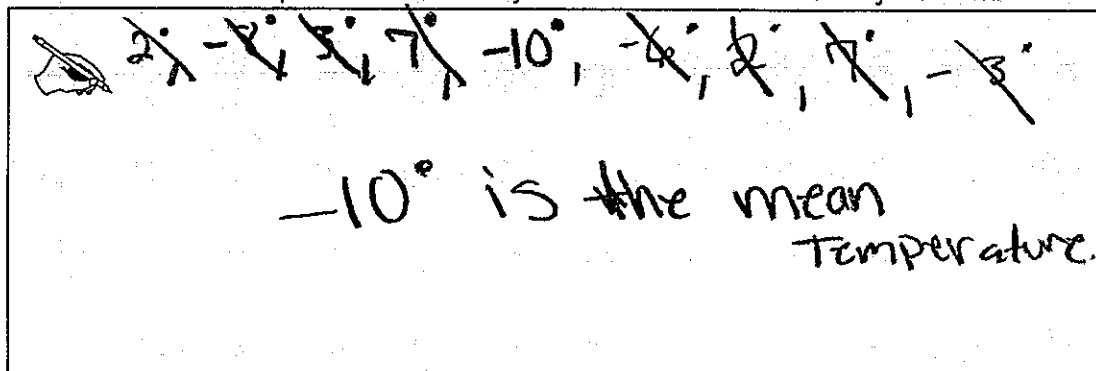 2°, -2°, 3°, 7°, -10°, -4°, 2°, 7°, -3°
-10° is the mean
Temperature.